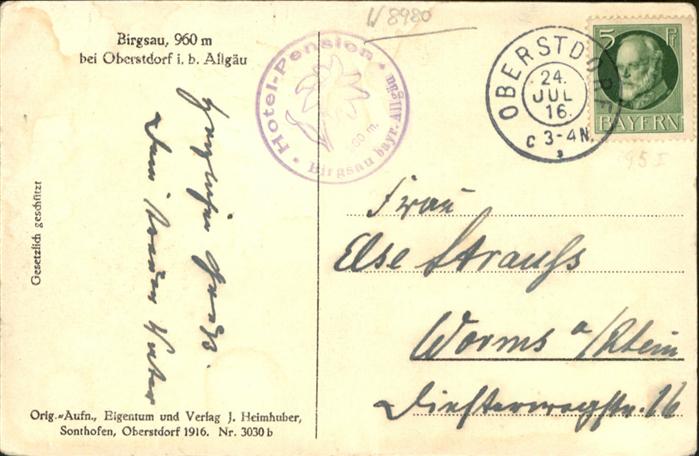 W 8980
Birgsau, 960 m
bei Oberstdorf i. b. Allgäu
Hotel-Pension
960 m.
Birgsau bayr. Allgäu
OBERSTDORF
24.
JUL
16.
C 3-4 N.
5 Pf
BAYERN
95 I
Gesetzlich geschützt
Herzlichen Gruß.
Dein treuer Vater
Frau
Else Strauß
Worms a/Rhein
Diesterwegstr. 16
Orig.-Aufn., Eigentum und Verlag J. Heimhuber,
Sonthofen, Oberstdorf 1916. Nr. 3030 b